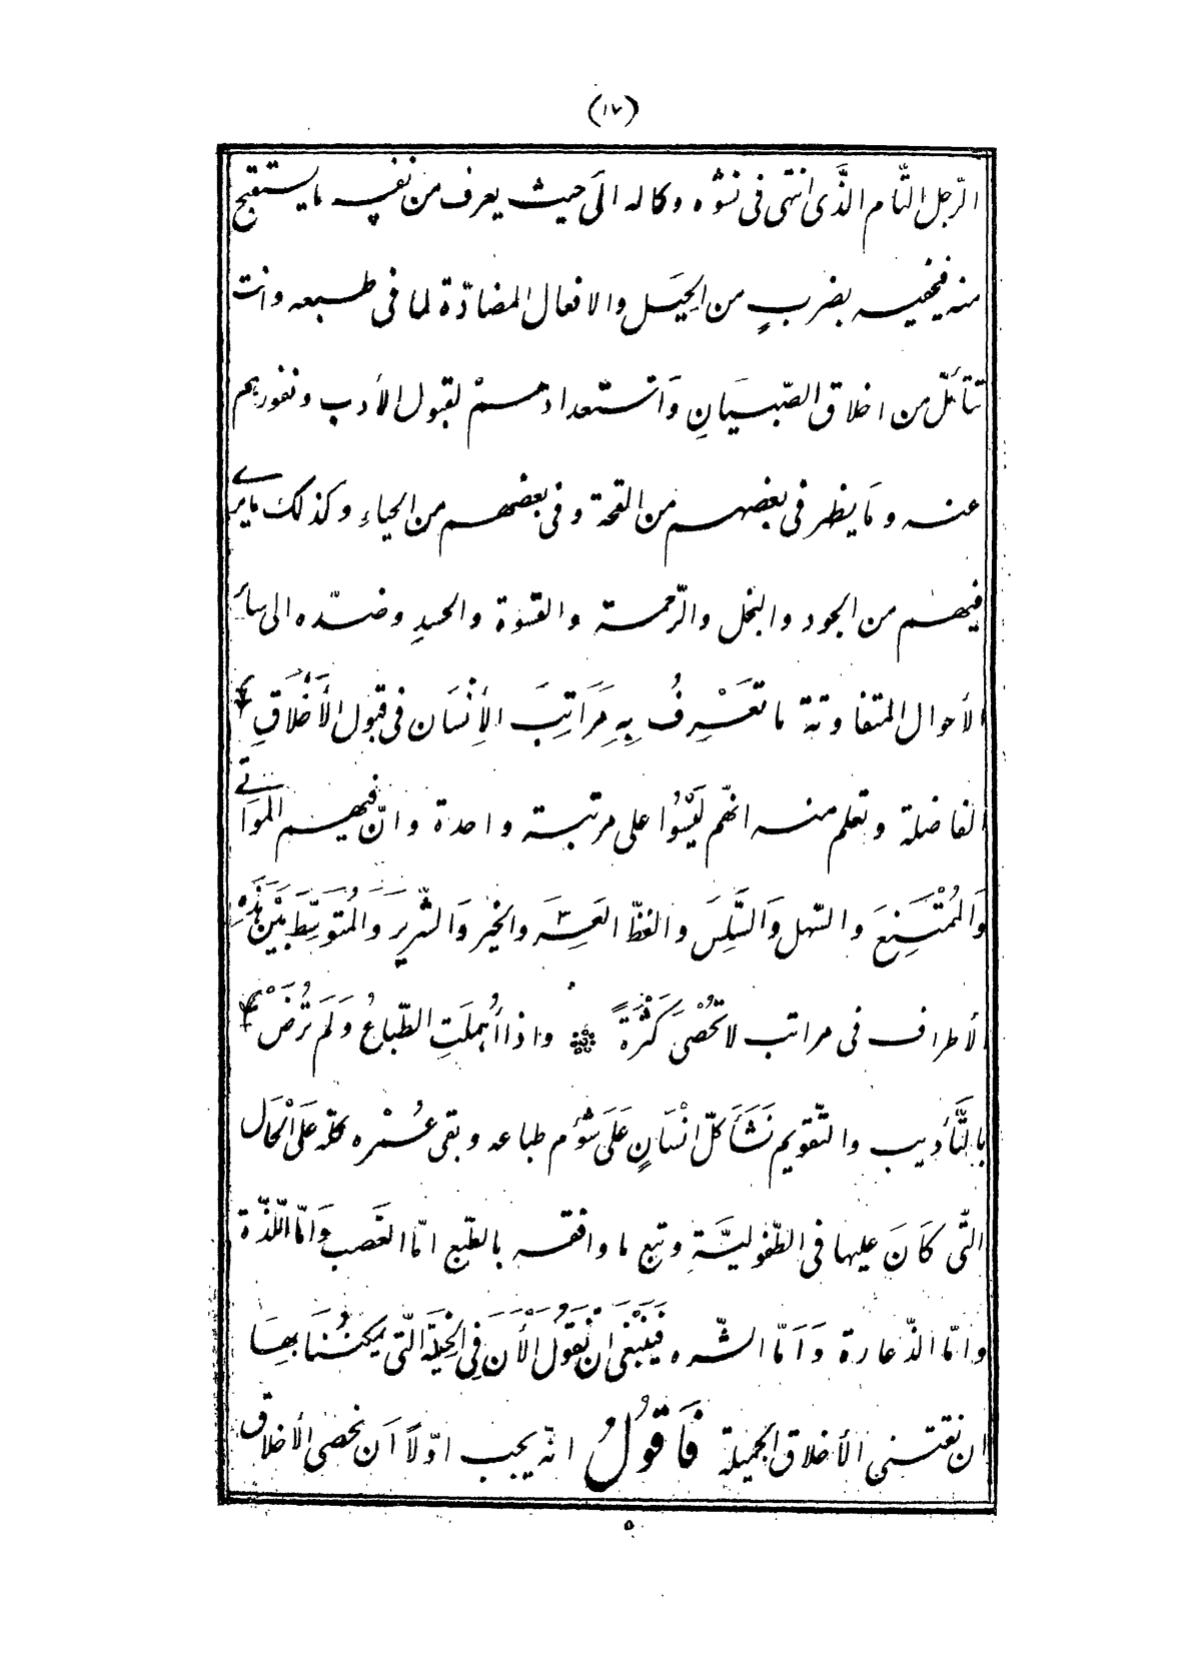 (١٧)
الرّجل التّام الذَّى انتهى فى نشوه وكماله الَى حيث يعرف من نفسه ما يستقبح
منه فيخفيه بضربٍ من الحِيَل والافعال المضادّة لما فى طبيعه وانت
تتأمّل من اخلاق الصّبيَانِ وَاستعدادهمْ لقبول الأدب ونفورهم
عنه ومَا يظهر فى بعضهم من القحة وفى بعضهم من الحياءِ وكذلك مايرى
فيهم من الجود والبخل والرّحمة والقسْوَة والحسدِ وضدّه الى سائر
الأحوال المتفاوتة ما تَعْرِفُ بِهِ مَرَاتِبَ الأِنْسَان فى قبول الأَخْلَاقِ
الفاضلة وتعلم منه انّهم لَيْسُوا على مرتبة واحدة وانّ فيهم المُوَاتى
وَالمُمْتَنِعَ والسّهل وَالسَّلِسَ والفظّ العَسِرَ والخيّر وَالشّريرَ وَالمُتَوسِّطَ بَيْنَ هٰذِهِ
الأطراف فى مراتب لا تُحْصٰى كَثْرَةً ۞ واذا أُهْمِلَتِ الطّبَاعُ وَلَم تُرَضْ
بِالتَّأديب والتّقويم نَشَأَ كلّ انْسَانٍ عَلَى سُوْءِ طباعه وبقى عُمْره كلّه عَلَى الْحَال
التَّى كَانَ عليها فى الطّفوليَّة وتبع ما وافقه بالطّبع امّا الغَضب وَامّا اللّذّة
وامّا الذّعارة وَامّا الشّره فَيَنْبَغِى ان نَقُولَ الْأَن فِى الحِيْلَةِ التّى يمكنُنَا بهَا
ان نقتنى الأخلاق الجميلة فَاَقُولُ انّه يجب اوّلاً اَن نحصى الأخلاق
٥